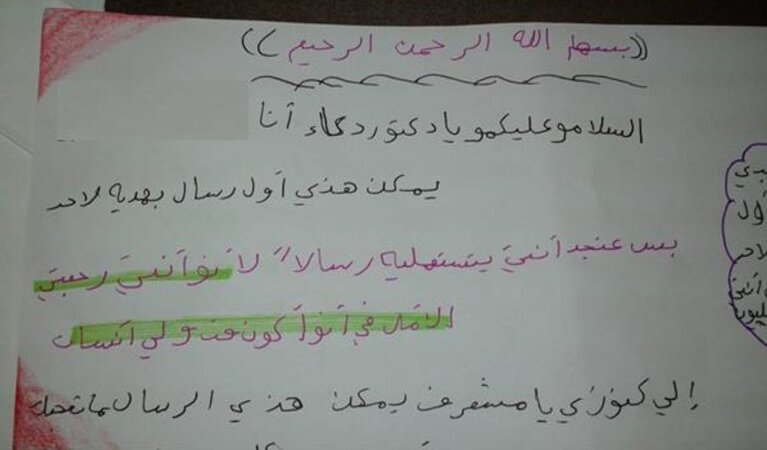 ((بسم الله الرحمن الرحيم))
السلامو عليكمو يا دكتور دعاء أنا
يمكن هذي أول رسال بهديه لاحد
بس عنجد أنتي يتستهليه رسالاً لأنو أنتي رجعتي
الأمل في أنو أكون مت ولي أنسان
إلي كنوزي يا مشرف يمكن هذي الرسال ما تعجبك
بدي
أول
لاحد
أنتي